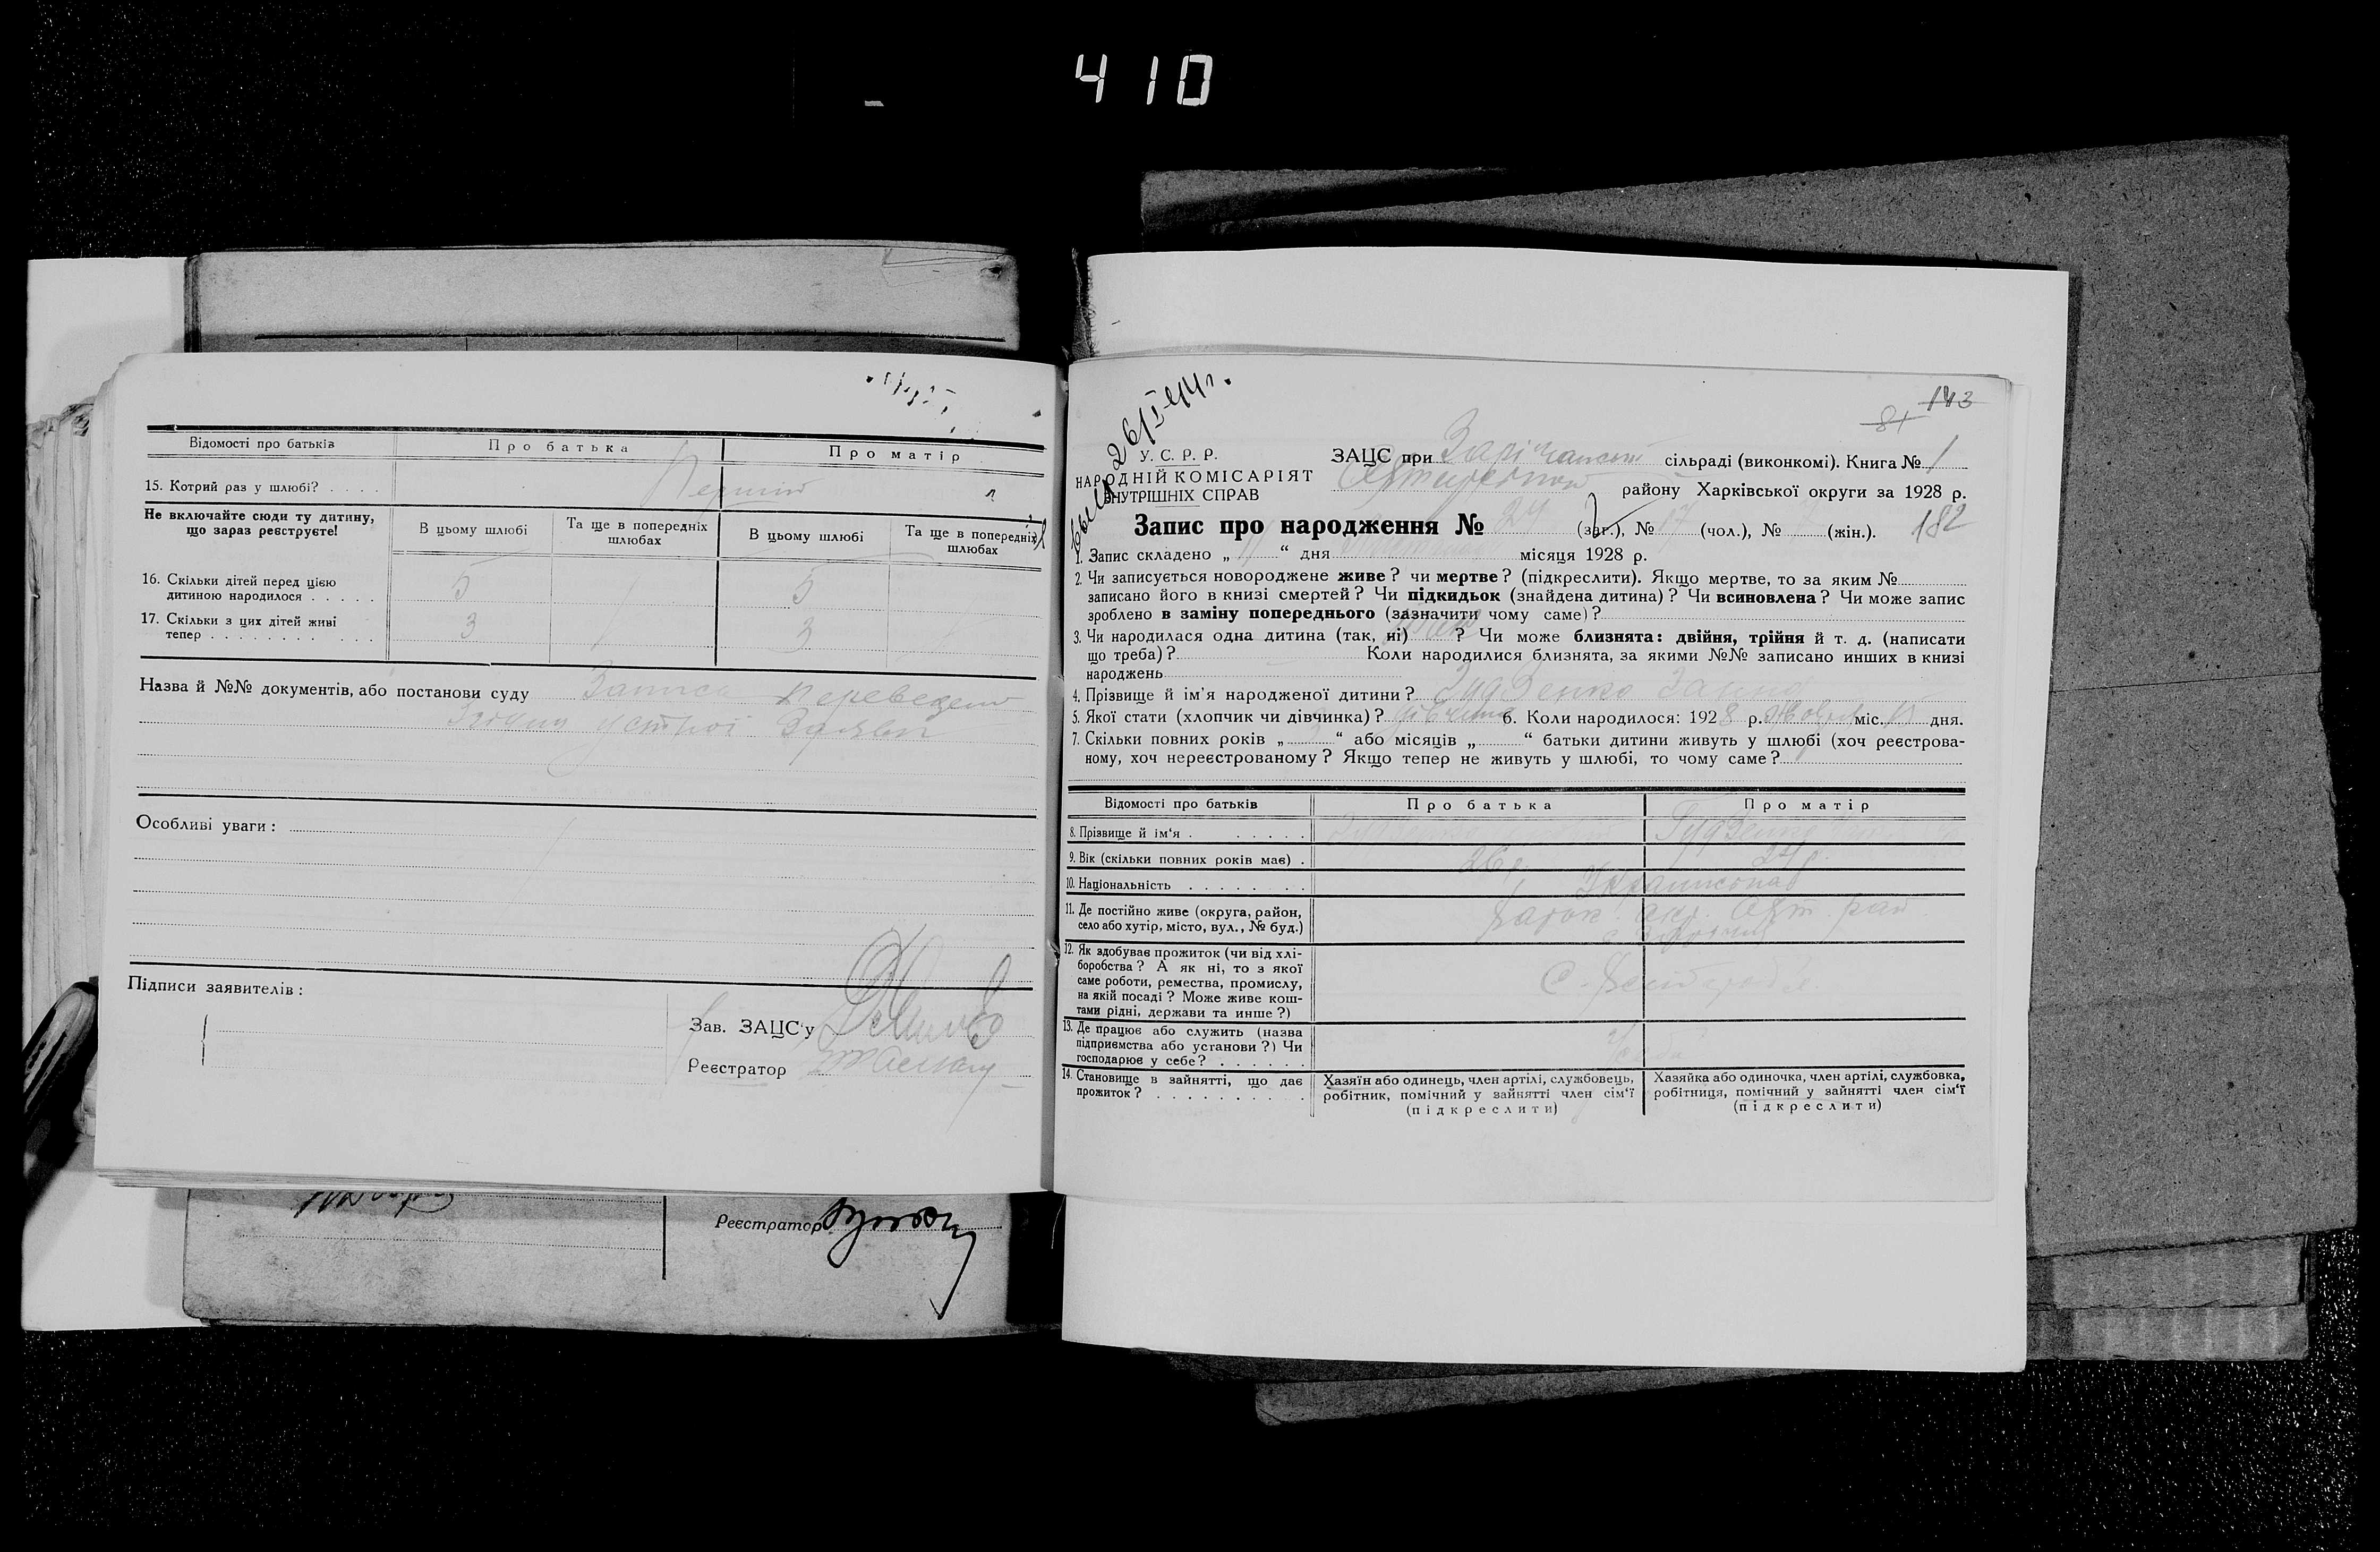 410
Відомості про батьків
Про батька
Про матір
15. Котрий раз у шлюбі? . . . .
Перший
Не включайте сюди ту дитину,
що зараз реєструєте!
В цьому шлюбі
Та ще в попередніх
шлюбах
В цьому шлюбі
Та ще в попередніх
шлюбах
16. Скільки дітей перед цією
дитиною народилося . . . . .
5
5
17. Скільки з цих дітей живі
тепер . . . . . . . . . . .
3
3
Назва й №№ документів, або постанови суду Запис переведено
Згідно устної Заяви
Особливі уваги :
Підписи заявителів :
Зав. ЗАЦС'у
Реєстратор
Реєстратор
26/I-44г.
143
81
У. С. Р. Р.
НАРОДНІЙ КОМІСАРІЯТ
ВНУТРІШНІХ СПРАВ
ЗАЦС при Зарічанській сільраді (виконкомі). Книга № 1
району Харківської округи за 1928 р.
Запис про народження № 24 (заг.), № 17 (чол.), № (жін.).
182
1. Запис складено „ 11 “ дня місяця 1928 р.
2. Чи записується новороджене живе ? чи мертве ? (підкреслити). Якщо мертве, то за яким №
записано його в книзі смертей ? Чи підкидьок (знайдена дитина) ? Чи всиновлена ? Чи може запис
зроблено в заміну попереднього (зазначити чому саме) ?
3. Чи народилася одна дитина (так, ні) так ? Чи може близнята: двійня, трійня й т. д. (написати
що треба) ? Коли народилися близнята, за якими №№ записано инших в книзі
народжень
4. Прізвище й ім'я народженої дитини ?
5. Якої стати (хлопчик чи дівчинка) ? дівчина 6. Коли народилося: 1928 р. міс. дня.
7. Скільки повних років „ 3 “ або місяців „ “ батьки дитини живуть у шлюбі (хоч реєстрова-
ному, хоч нереєстрованому ? Якщо тепер не живуть у шлюбі, то чому саме ?
Відомості про батьків
Про батька
Про матір
8. Прізвище й ім'я . . . . . .
9. Вік (скільки повних років має) .
26 р.
24 р.
10. Національність . . . . . . .
11. Де постійно живе (округа, район,
село або хутір, місто, вул., № буд.)
Харк. окр. Охт. рай
12. Як здобуває прожиток (чи від хлі-
боробства ? А як ні, то з якої
саме роботи, ремества, промислу,
на якій посаді ? Може живе кош-
тами рідні, держави та инше ?)
13. Де працює або служить (назва
підприємства або установи ?) Чи
господарює у себе ? . . . . . .
14. Становище в зайнятті, що дає
прожиток ? . . . . . . . . . .
Хазяїн або одинець, член артілі, службовець,
робітник, помічний у зайнятті член сім'ї
(підкреслити)
Хазяйка або одиночка, член артілі, службовка,
робітниця, помічний у зайнятті член сім'ї
(підкреслити)